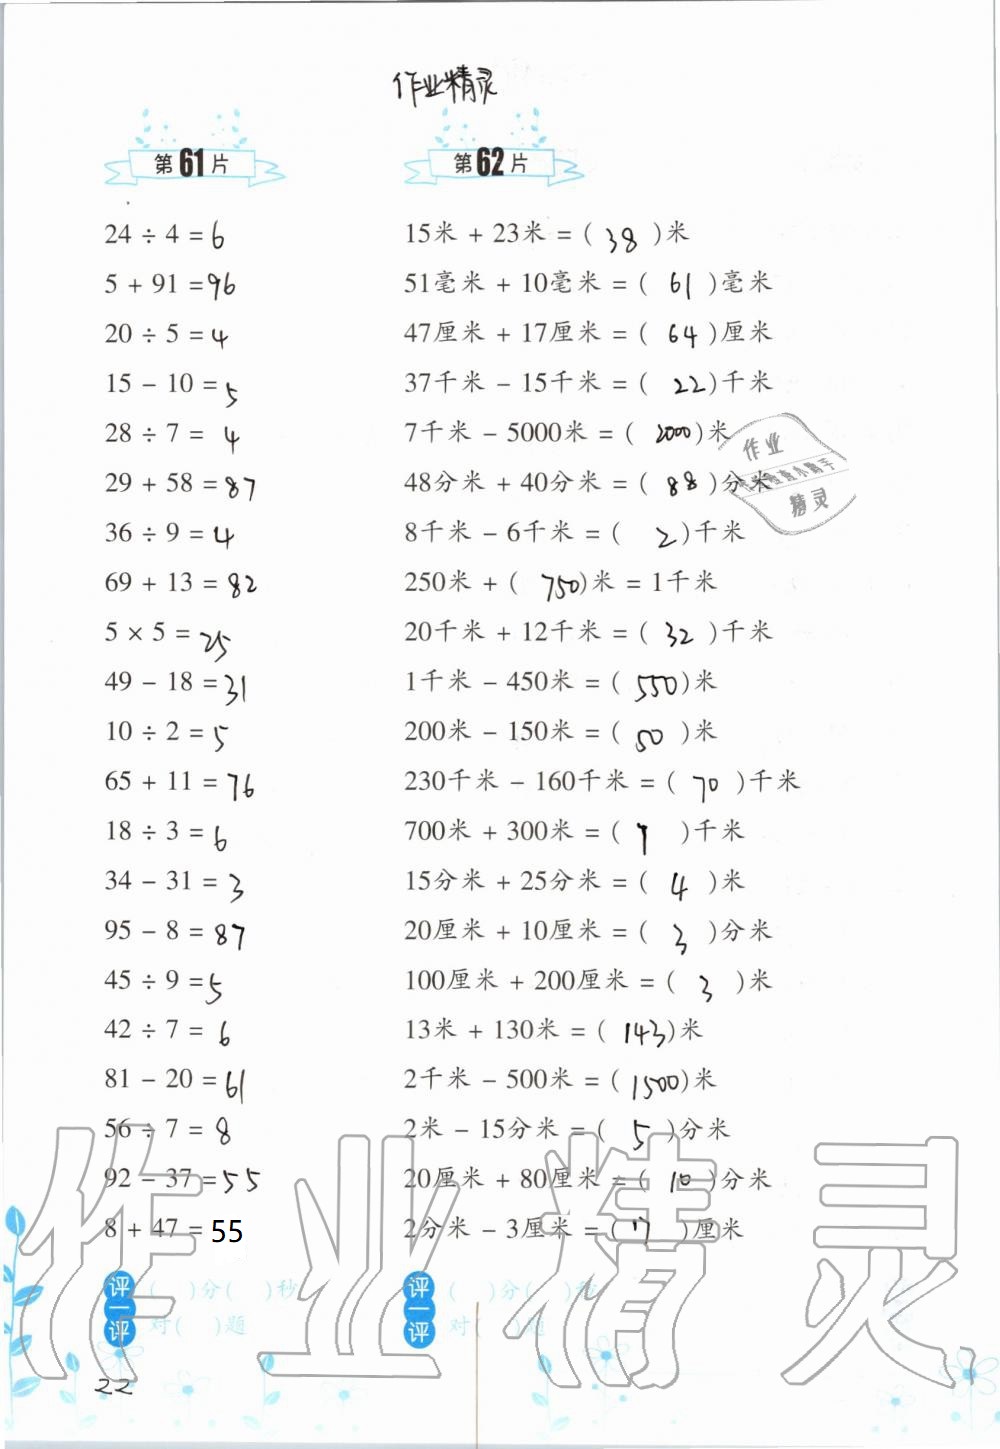 作业精灵
第61片
24 ÷ 4 = 6
5 + 91 = 96
20 ÷ 5 = 4
15 - 10 = 5
28 ÷ 7 = 4
29 + 58 = 87
36 ÷ 9 = 4
69 + 13 = 82
5 × 5 = 25
49 - 18 = 31
10 ÷ 2 = 5
65 + 11 = 76
18 ÷ 3 = 6
34 - 31 = 3
95 - 8 = 87
45 ÷ 9 = 5
42 ÷ 7 = 6
81 - 20 = 61
56 ÷ 7 = 8
92 - 37 = 55
8 + 47 = 55
评一评
( )分( )秒
对( )题
第62片
15米 + 23米 = ( 38 )米
51毫米 + 10毫米 = ( 61 )毫米
47厘米 + 17厘米 = ( 64 )厘米
37千米 - 15千米 = ( 22 )千米
7千米 - 5000米 = ( 2000 )米
48分米 + 40分米 = ( 88 )分米
8千米 - 6千米 = ( 2 )千米
250米 + ( 750 )米 = 1千米
20千米 + 12千米 = ( 32 )千米
1千米 - 450米 = ( 550 )米
200米 - 150米 = ( 50 )米
230千米 - 160千米 = ( 70 )千米
700米 + 300米 = ( 1 )千米
15分米 + 25分米 = ( 4 )米
20厘米 + 10厘米 = ( 3 )分米
100厘米 + 200厘米 = ( 3 )米
13米 + 130米 = ( 143 )米
2千米 - 500米 = ( 1500 )米
2米 - 15分米 = ( 5 )分米
20厘米 + 80厘米 = ( 10 )分米
2分米 - 3厘米 = ( 17 )厘米
评一评
( )分( )秒
对( )题
作业
精灵
作业精灵
22